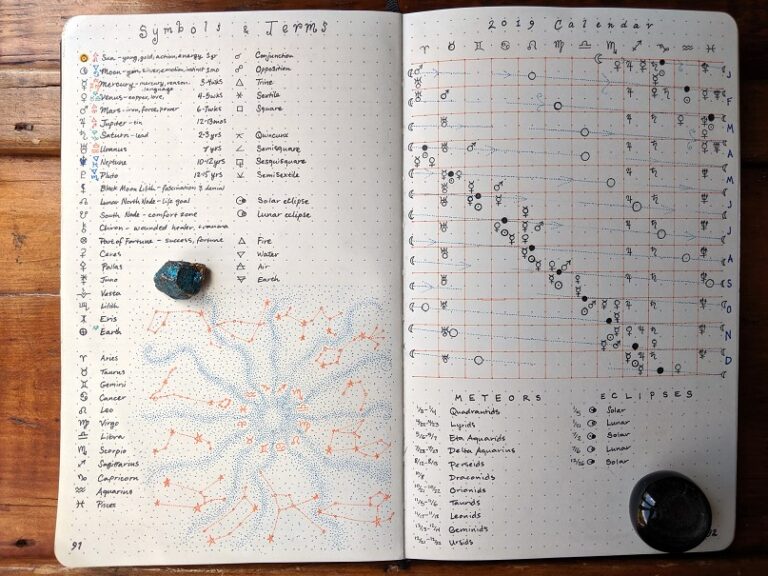 Symbols & Terms
☉ Sun - yang, gold, action, energy 1yr
☽ Moon - yin, silver, emotion, instinct 1mo
☿ Mercury - mercury, reason, language 3-4wks
♀ Venus - copper, love, 4-5wks
♂ Mars - iron, force, power 6-7wks
♃ Jupiter - tin 12-13mos
♄ Saturn - lead 2-3yrs
♅ Uranus 7yrs
♆ Neptune 10-12yrs
♇ Pluto 12-15yrs
Black Moon Lilith - fascination & denial
☊ Lunar North Node - life goal
☋ South Node - comfort zone
Chiron - wounded healer, + trauma
⊗ Part of Fortune - success, fortune
Ceres
Pallas
Juno
Vesta
Lilith
Eris
⊕ Earth
♈ Aries
♉ Taurus
♊ Gemini
♋ Cancer
♌ Leo
♍ Virgo
♎ Libra
♏ Scorpio
♐ Sagittarius
♑ Capricorn
♒ Aquarius
♓ Pisces
☌ Conjunction
☍ Opposition
△ Trine
⚹ Sextile
□ Square
⚻ Quincunx
∠ Semisquare
⚼ Sesquisquare
⚺ Semisextile
Solar eclipse
Lunar eclipse
△ Fire
▽ Water
Air
Earth
91
2019 Calendar
♈ ♉ ♊ ♋ ♌ ♍ ♎ ♏ ♐ ♑ ♒ ♓
J
F
M
A
M
J
J
A
S
O
N
D
METEORS
1/3-1/4 Quadrantids
4/22-4/23 Lyrids
5/6-5/7 Eta Aquarids
7/28-7/29 Delta Aquarids
8/12-8/13 Perseids
10/8 Draconids
10/21-10/22 Orionids
11/5-11/6 Taurids
11/17-11/18 Leonids
12/13-12/14 Geminids
12/21-12/22 Ursids
ECLIPSES
1/5 Solar
Lunar
7/2 Solar
7/16 Lunar
12/26 Solar